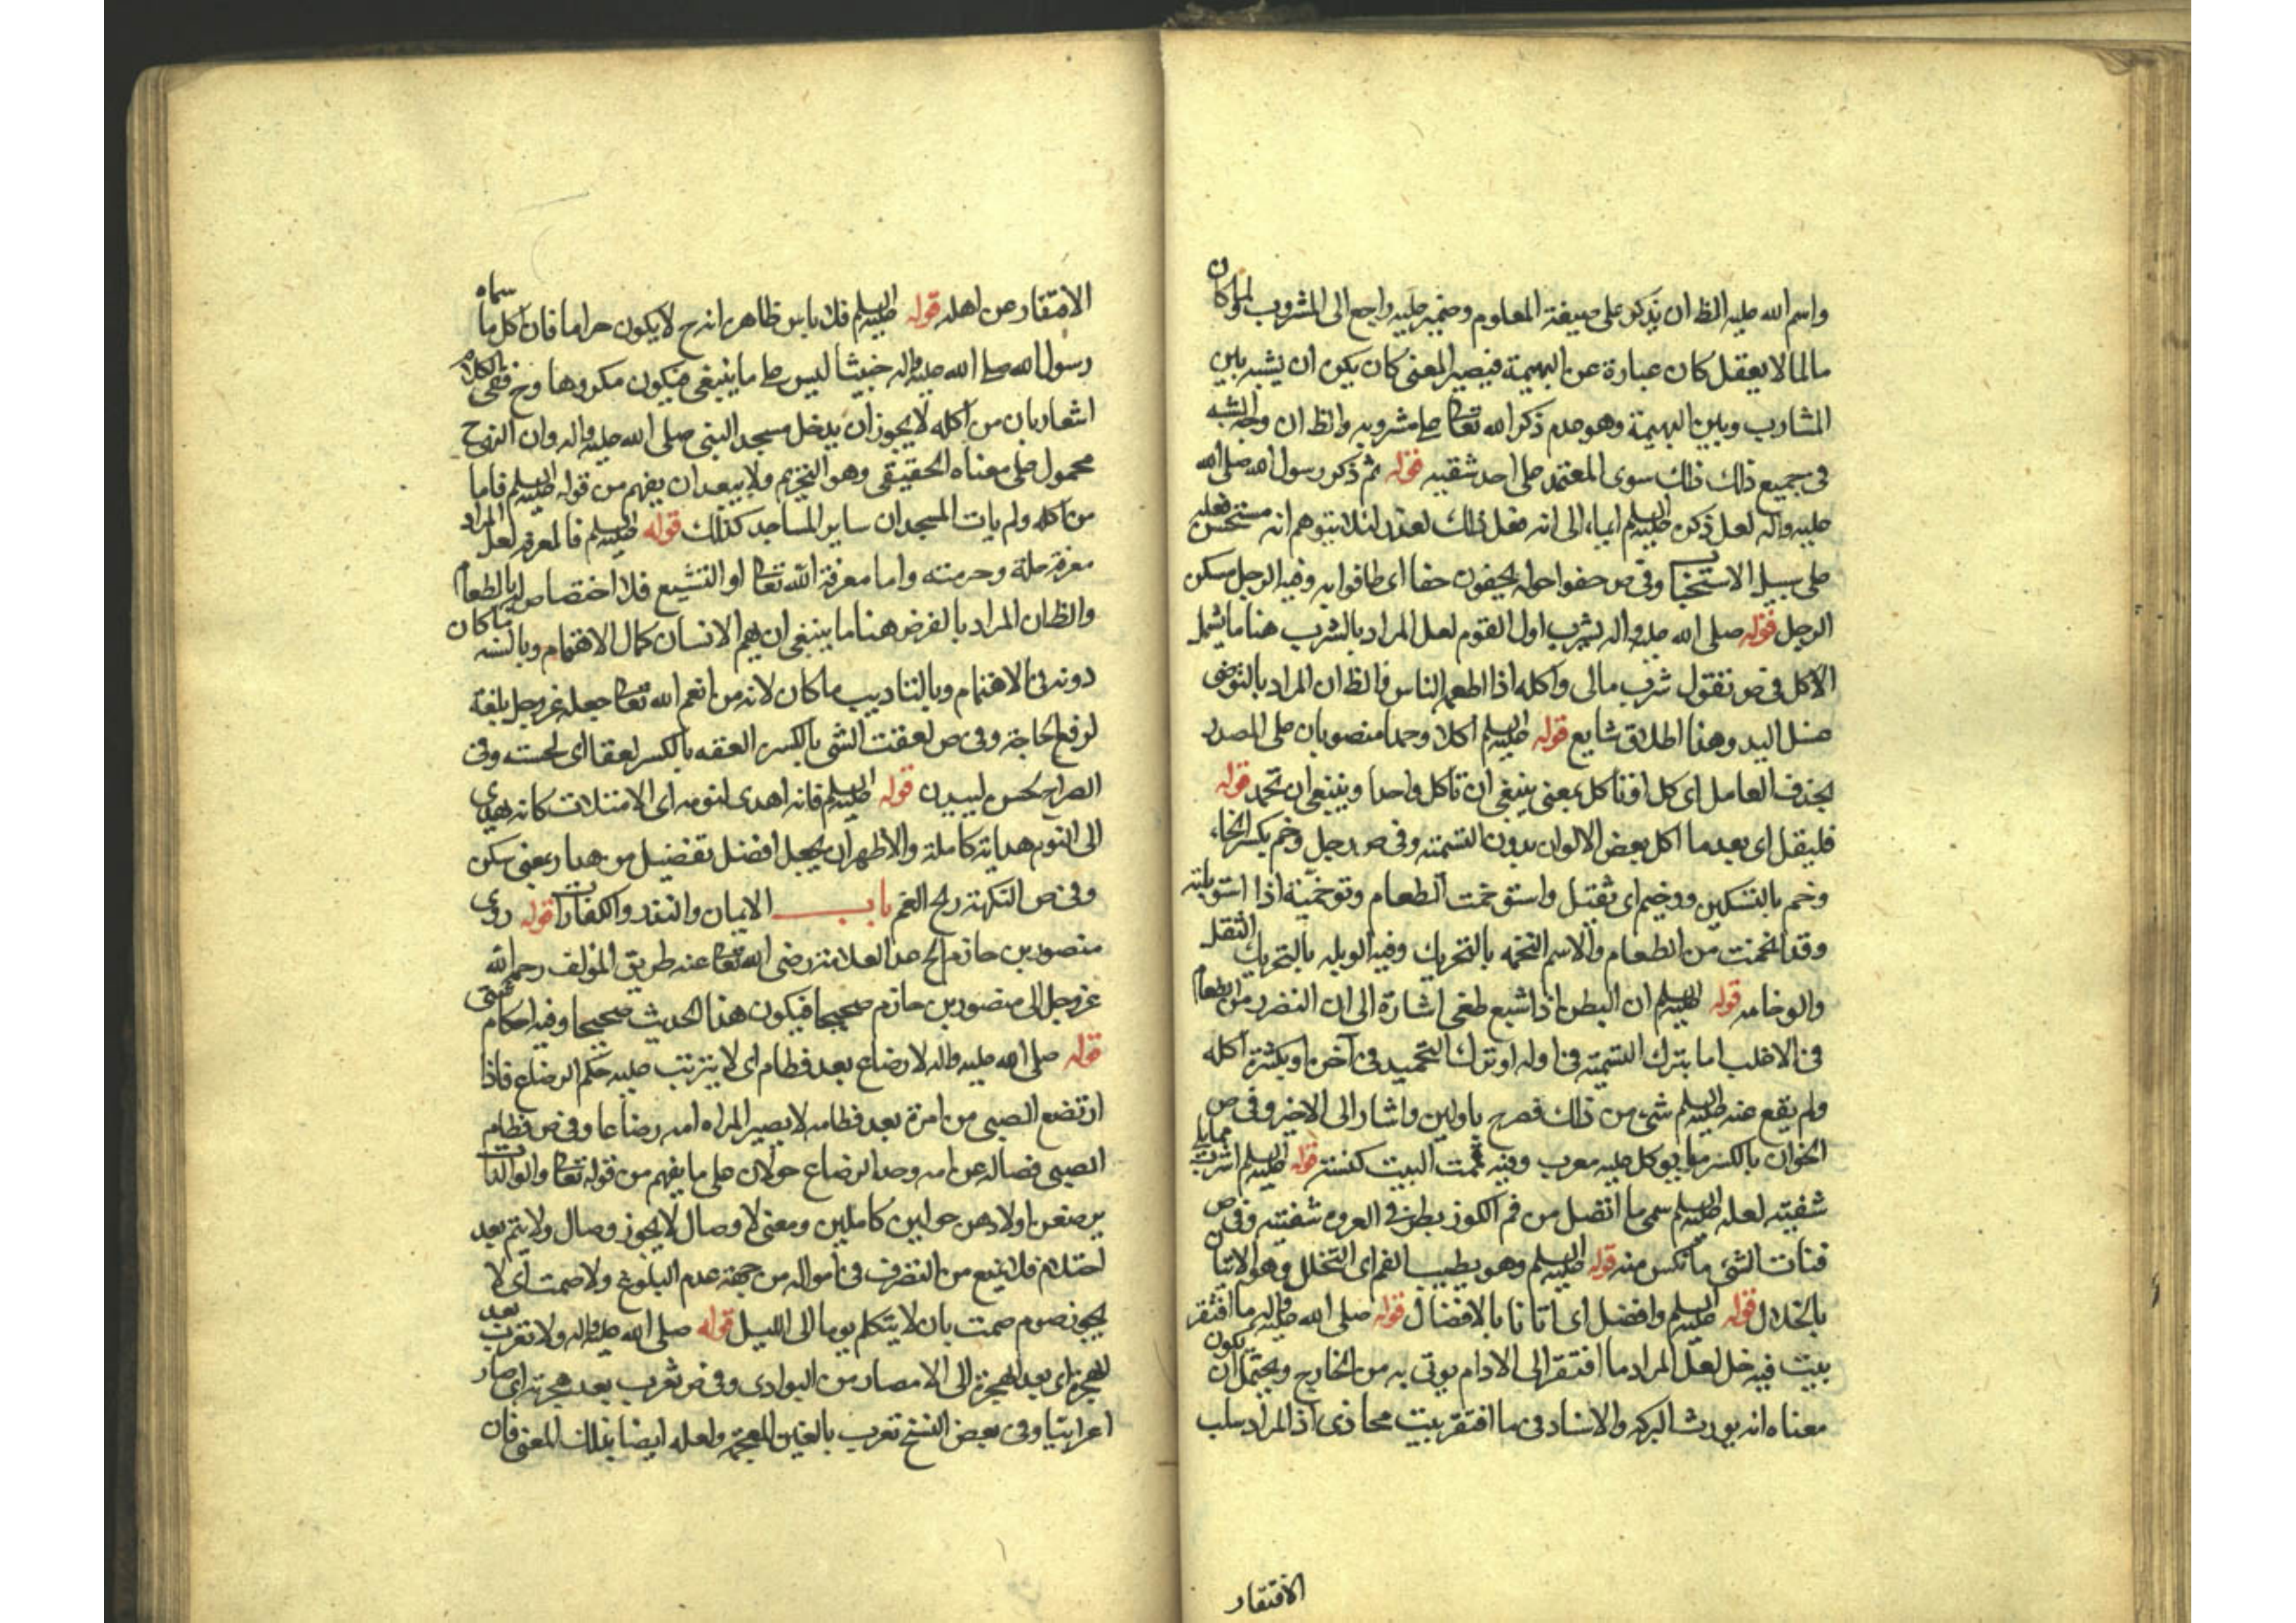 واسم الله عليه الظ ان يذكر على صيغة المعلوم وضمير عليه راجع الى المشروب ولما كان
ما لما لا يعقل كان عبارة عن البهيمة فيصير المعنى كان يكن ان يشبه بين
المشارب وبين البهيمة وهو عدم ذكر الله تعالى على مشروبه والظ ان وجه الشبه
في جميع ذلك ذلك سوى المعتمد على احد شقيه قوله ثم ذكر رسول الله صلى الله
عليه وآله لعل ذكره عليه السلم ايماء الى انه فعل ذلك لعذر لئلا يتوهم انه مستحسن فعله
على سبيل الاستحباب وفي ص حفوا حوله يحفون حفا اى طافوا به وفيه الرجل مسكن
الرجل قوله صلى الله عليه واله يشرب اول القوم لعل المراد بالشرب هنا ما يشمل
الاكل في ص تقول شرب مالى واكله اذا اطعمه الناس والظ ان المراد بالتوضى
غسل اليد وهذا اطلاق شايع قوله عليه السلم اكلا وحمدا منصوبان على المصدر
بحذف العامل اى كل اكلا بمعنى ينبغي ان تاكل واحدا وينبغي ان تحمد قوله
فليقل اى بعد ما اكل بعض الالوان بدون التسمية وفي ص رجل وخم بكسر الخاء
وخم بالتسكين ووخيم اى ثقيل واستوخمت الطعام وتوخمته اذا استوبلته
وقد اتخمت من الطعام والاسم التخمه بالتحريك وفيه الوبله بالتحريك الثقل
والوخامه قوله عليه السلم ان البطن اذا شبع طغى اشارة الى ان الضرر من الطعام
في الاغلب اما بترك التسمية في اوله او ترك التحميد في آخره او بكثرة اكله
ولم يقع عنه عليه السلم شئ من ذلك فصرح باولين واشار الى الاخير وفي ص
الخوان بالكسر ما يوكل عليه معرب وفيه قممت البيت كنسته قوله عليه السلم اشرب مما يلي
شفيته لعله عليه السلم سمى ما انفصل من فم الكوز بطرفي العروه شفتيه وفي ص
فتات الشئ ما تكس منه قوله عليه السلم وهو يطيب الفم اى التخلل وهو الاتيان
بالخلال قوله عليه السلم وافضل اى اتانا بالافضال قوله صلى الله عليه واله ما افتقر
بيت فيه خل لعل المراد ما افتقر الى الادام يوتى به من الخارج ويحتمل ان يكون
معناه انه يورث البركه والاسناد في ما افتقر بيت مجازى اذ المراد سلب
الافتقار
الافتقار عن اهله قوله عليه السلم فلا باس ظاهره انه ح لا يكون حراما فان اكل ما سماه
رسول الله صلى الله عليه واله خبيثا ليس على ما ينبغي فيكون مكروها وح ففي الكلام
اشعار بان من اكله لا يجوز ان يدخل مسجد النبي صلى الله عليه واله وان النهي ح
محمول على معناه الحقيقي وهو التحريم ولا يبعد ان يفهم من قوله عليه السلم فاما
من اكله ولم يات المسجد ان ساير المساجد كذلك قوله عليه السلم فالمعرفه لعل المراد
معرفة حله وحرمته واما معرفة الله تعالى او التشيع فلا اختصاص له بالطعام
والظ ان المراد بالفرض هنا ما ينبغي ان يهم الانسان كمال الاهتمام وبالسنه ما كان
دونه في الاهتمام وبالتاديب ما كان لانه من انعم الله تعالى جعله عز وجل بلغة
لرفع الحاجة وفي ص لعقت الشئ بالكسر العقه بالكسر لعقا اى لحسته وفي
الصراح لحس ليسيدن قوله عليه السلم فانه اهدى لنومه اى الامتلات كانه يهدى
الى النوم هداية كاملة والاظهر ان يجعل افضل تفضيل من هدا بمعنى سكن
وفي ص النكهة ريح الفم باب الايمان والنذر والكفارات قوله روى
منصور بن حازم الخ عد العلامة رضى الله تعالى عنه طريق المؤلف رحمه الله
عز وجل الى منصور بن حازم صحيحا فيكون هذا الحديث صحيحا وفيه احكام شتى
قوله صلى الله عليه واله لا رضاع بعد فطام اى لا يترتب عليه حكم الرضاع فاذا
ارتضع الصبى من امرة بعد فطامه لا يصير المراه امه رضاعا وفي ص فطام
الصبى فصاله عن امه وحد الرضاع حولان على ما يفهم من قوله تعالى والوالدات
يرضعن اولادهن حولين كاملين ومعنى لا وصال لا يجوز وصال ولا يتم بعد
احتلام فلا يمنع من التصرف في امواله من جهة عدم البلوغ ولا صمت اى لا
يجوز صوم صمت بان لا يتكلم يوما الى الليل قوله صلى الله عليه واله ولا تعرب بعد
الهجرة اى بعد الهجرة الى الامصار من البوادى وفي ص تعرب بعد هجرته اى صار
اعرابيا وفي بعض النسخ تغرب بالغين المعجمه ولعله ايضا بذلك المعنى فان